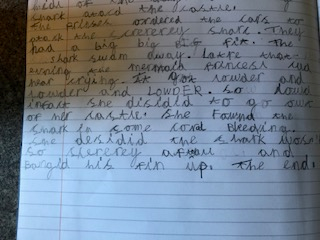 of the
shark awoid the castle.
The princes ordered the cats to
atack the screrey shark. They
had a big big fit. The
shark swam away. Later that
evning the mermaid princess cud
hear crying. It got louder and
louder and LOWDER. So lowd
infact she disidid to go owt
of her castle. She Found the
shark in some coral Bleeding.
She desidid the shark wosent
so screrey after all and
bangid his fin up. The end.